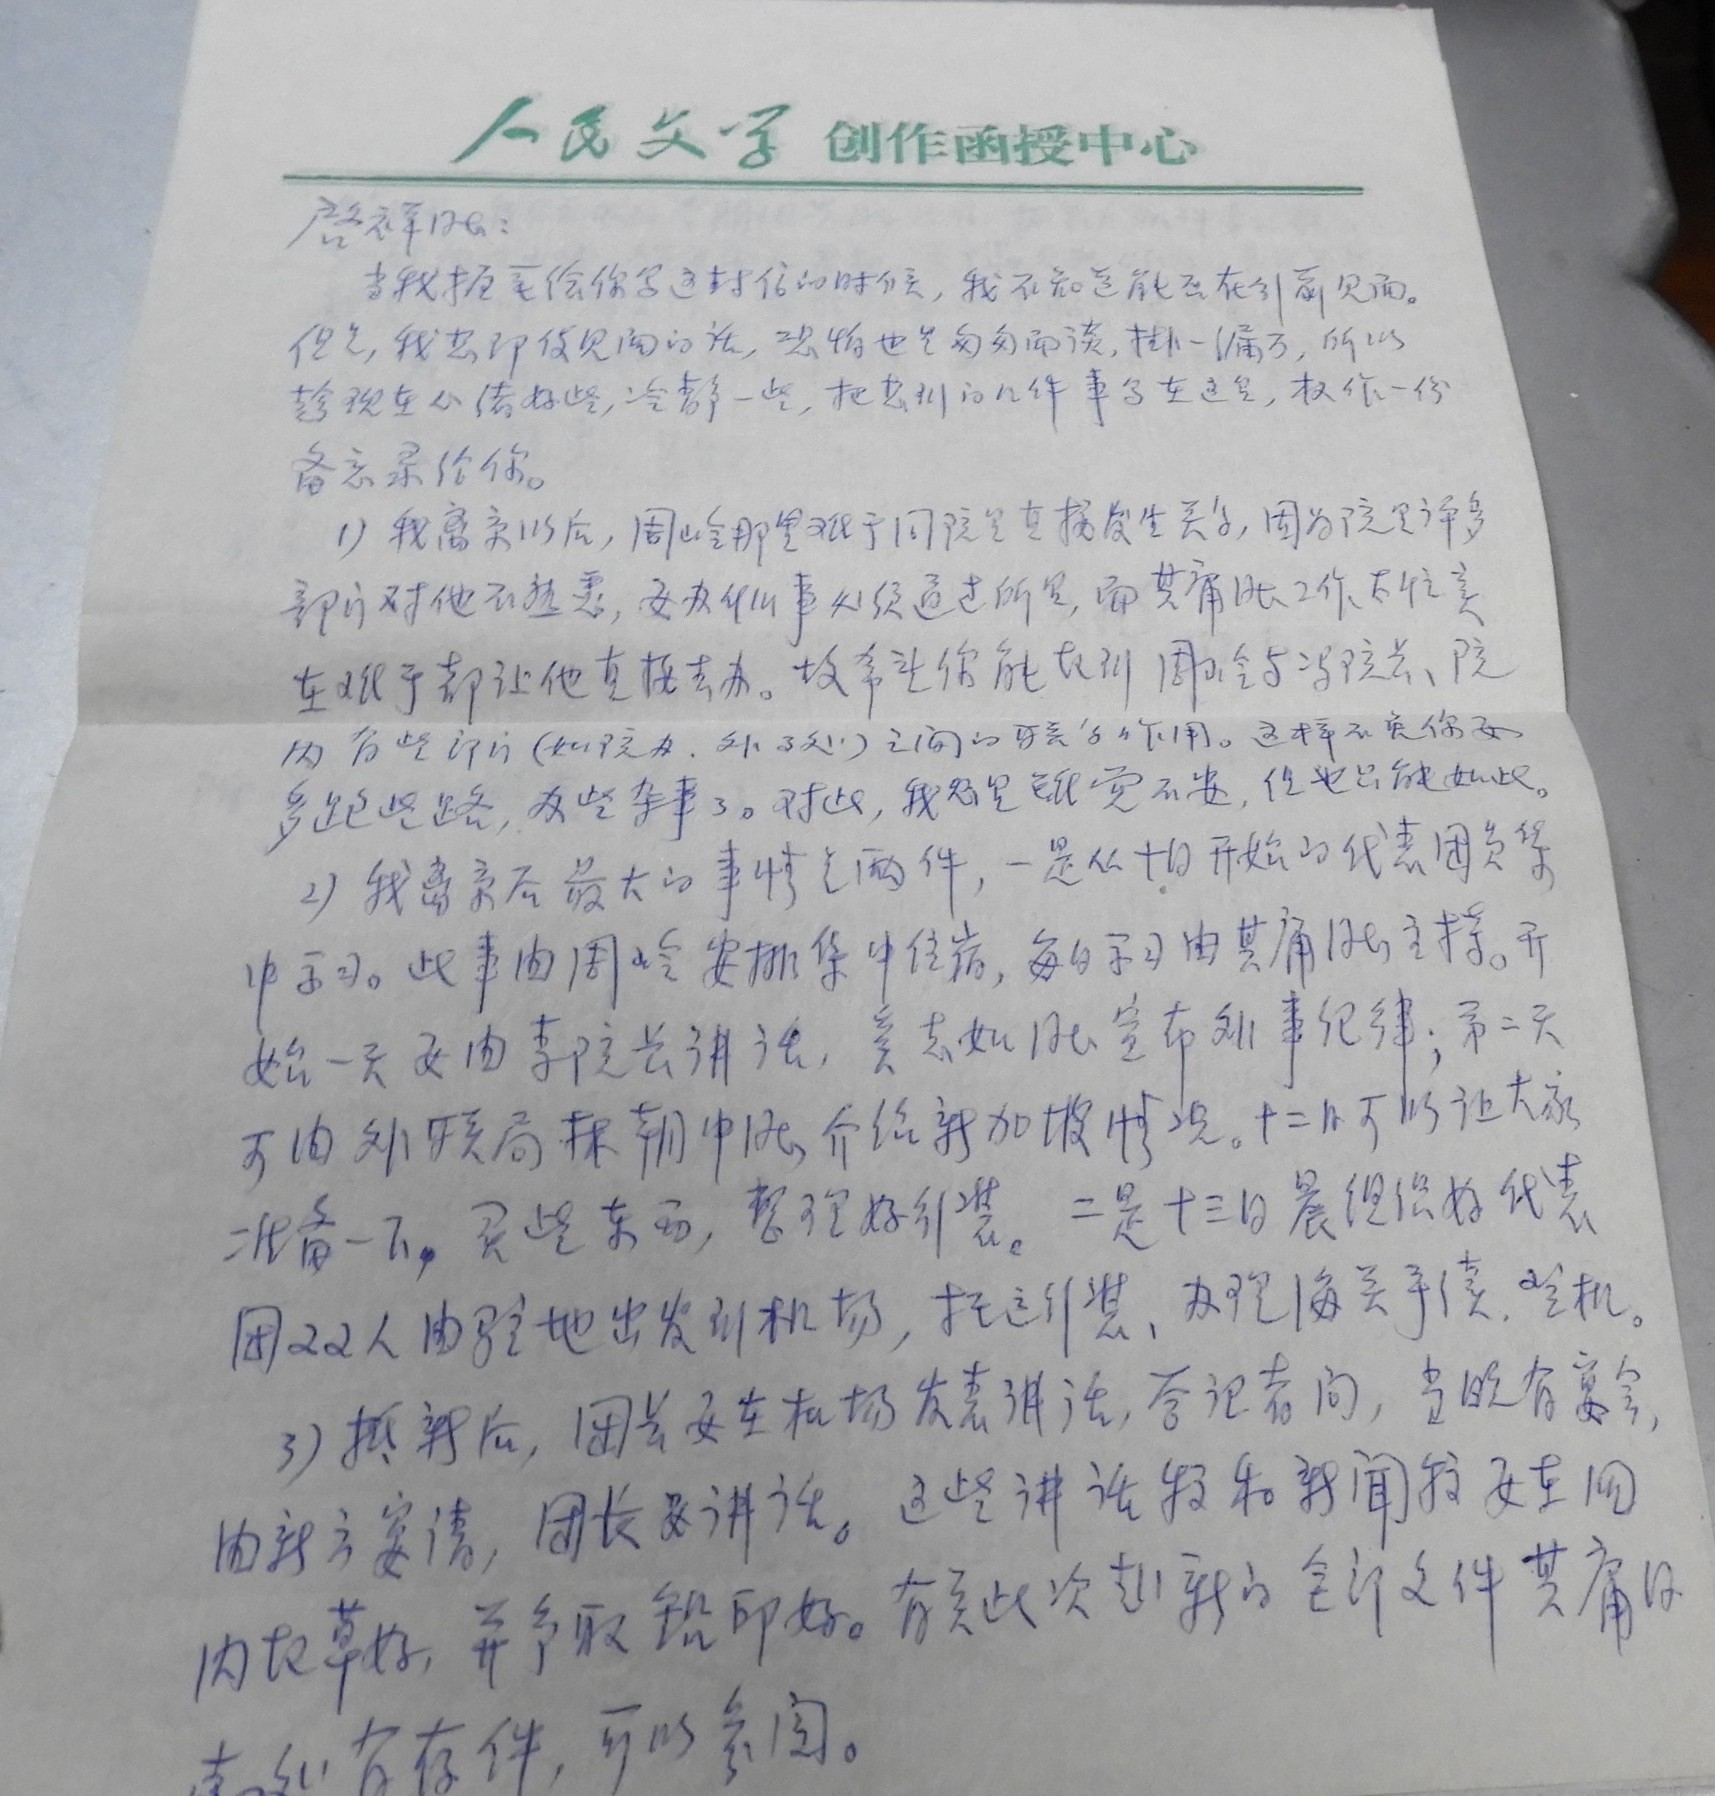 人民文学 创作函授中心
启祥同志：
当我提笔给你写这封信的时候，我不知道能否在行前见面。
但是，我想即使见面的话，恐怕也是匆匆而谈，挂一漏万，所以
趁现在心绪好些，冷静一些，把想到的几件事写在这里，权作一份
备忘录给你。
1) 我离京以后，周岭那里难于同院里直接发生关系，因为院里许多
部门对他不熟悉，要办什么事必须通过所里，而其庸同志工作太忙，实
在难于都让他直接去办。故希望你能起到周岭与冯院长、院
内有些部门（如院办、外事处）之间的联系作用。这样不免你要
多跑些路，办些杂事了。对此，我总是感觉不安，但也只能如此。
2) 我离京后最大的事情是两件，一是从十日开始的代表团员集
中学习。此事由周岭安排集中住宿，每日学习由其庸同志主持。开
始一天要由李院长讲话，吴志如同志宣布外事纪律；第二天
可由外联局林朝中同志介绍新加坡情况。十二日可以让大家
准备一下，买些东西，整理好行装。二是十三日晨组织好代表
团22人由驻地出发到机场，托运行装、办理海关手续、登机。
3) 抵新后，团长要在机场发表讲话，答记者问，当晚有宴会，
由新方宴请，团长要讲话。这些讲话稿和新闻稿要在国
内起草好，并争取铅印好。有关此次赴新的全部文件其庸同
志处有存件，可以参阅。